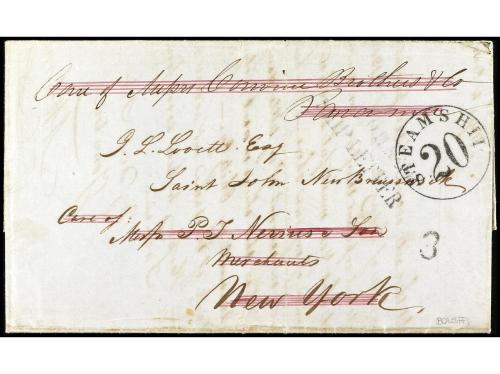 Care of Messrs Corwine Brothers & Co
Panama
J. L. Lovett Esq
Saint John New Brunswick
Care of
Messrs P. I. Nevius & Son
Merchants
New York
STEAMSHIP
20
SHIP LETTER
3